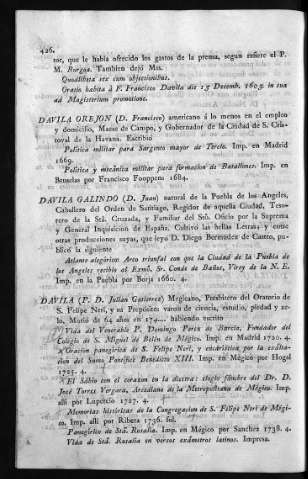 426.
tor, que le habia ofrecido los gastos de la prensa, segun refiere el P.
M. Borgaa. Tambien dejó Mss.
Quodlibeta sex cum objectionibus.
Oratio habita à F. Francisco Davila die 15 Decemb. 1605. in sua
ad Magisterium promotione.
DAVILA OREJON (D. Francisco) americano á lo menos en el empleo
y domicilio, Maese de Campo, y Gobernador de la Ciudad de S. Cris-
toval de la Havana. Escribió
Politica militar para Sargento mayor de Tercio. Imp. en Madrid
1669.
Politica y mecánica militar para formacion de Batallones. Imp. en
Bruselas por Francisco Fooppens 1684.
DAVILA GALINDO (D. Juan) natural de la Puebla de los Angeles,
Caballero del Orden de Santiago, Regidor de aquella Ciudad, Teso-
rero de la Sta. Cruzada, y Familiar del Sto. Oficio por la Suprema
y General Inquisicion de España. Cultivó las bellas Letras y entre
otras producciones suyas, que leyó D. Diego Bermudez de Castro, pu-
blicó la siguiente
Atlante alegórico: Arco triunfal con que la Ciudad de la Puebla de
los Angeles recibió al Exmô. Sr. Conde de Baños, Virey de la N. E.
Imp. en la Puebla por Borja 1660. 4.
DAVILA (P. D. Julian Gutierrez) Megicano, Presbitero del Oratorio de
S. Felipe Neri, y su Prepósito: varon de ciencia, estudio, piedad y ze-
lo. Murió de 64 años en 1744. habiendo escrito
Vida del Venerable P. Domingo Perez de Barcia, Fundador del
Colegio de S. Miguel de Belén de Mégico. Imp. en Madrid 1720. 4.
Oracion panegírica de S. Felipe Neri, y eucarística por la exalta-
cion del Sumo Pontífice Benedicto XIII. Imp. en Mégico por Hogal
1725. 4.
El Sábio con el corazon en la diestra: elogio fúnebre del Dr. D.
José Torres Vergara, Arcediano de la Metropolitana de Mégico. Imp.
alli por Lupercio 1727. 4.
Memorias históricas de la Congregacion de S. Felipe Neri de Mégi-
co. Imp. alli por Ribera 1736. fol.
Panegírico de Sta. Rosalia. Imp. en Mégico por Sanchez 1738. 4.
Vida de Sta. Rosalia en versos exámetros latinos. Impresa.